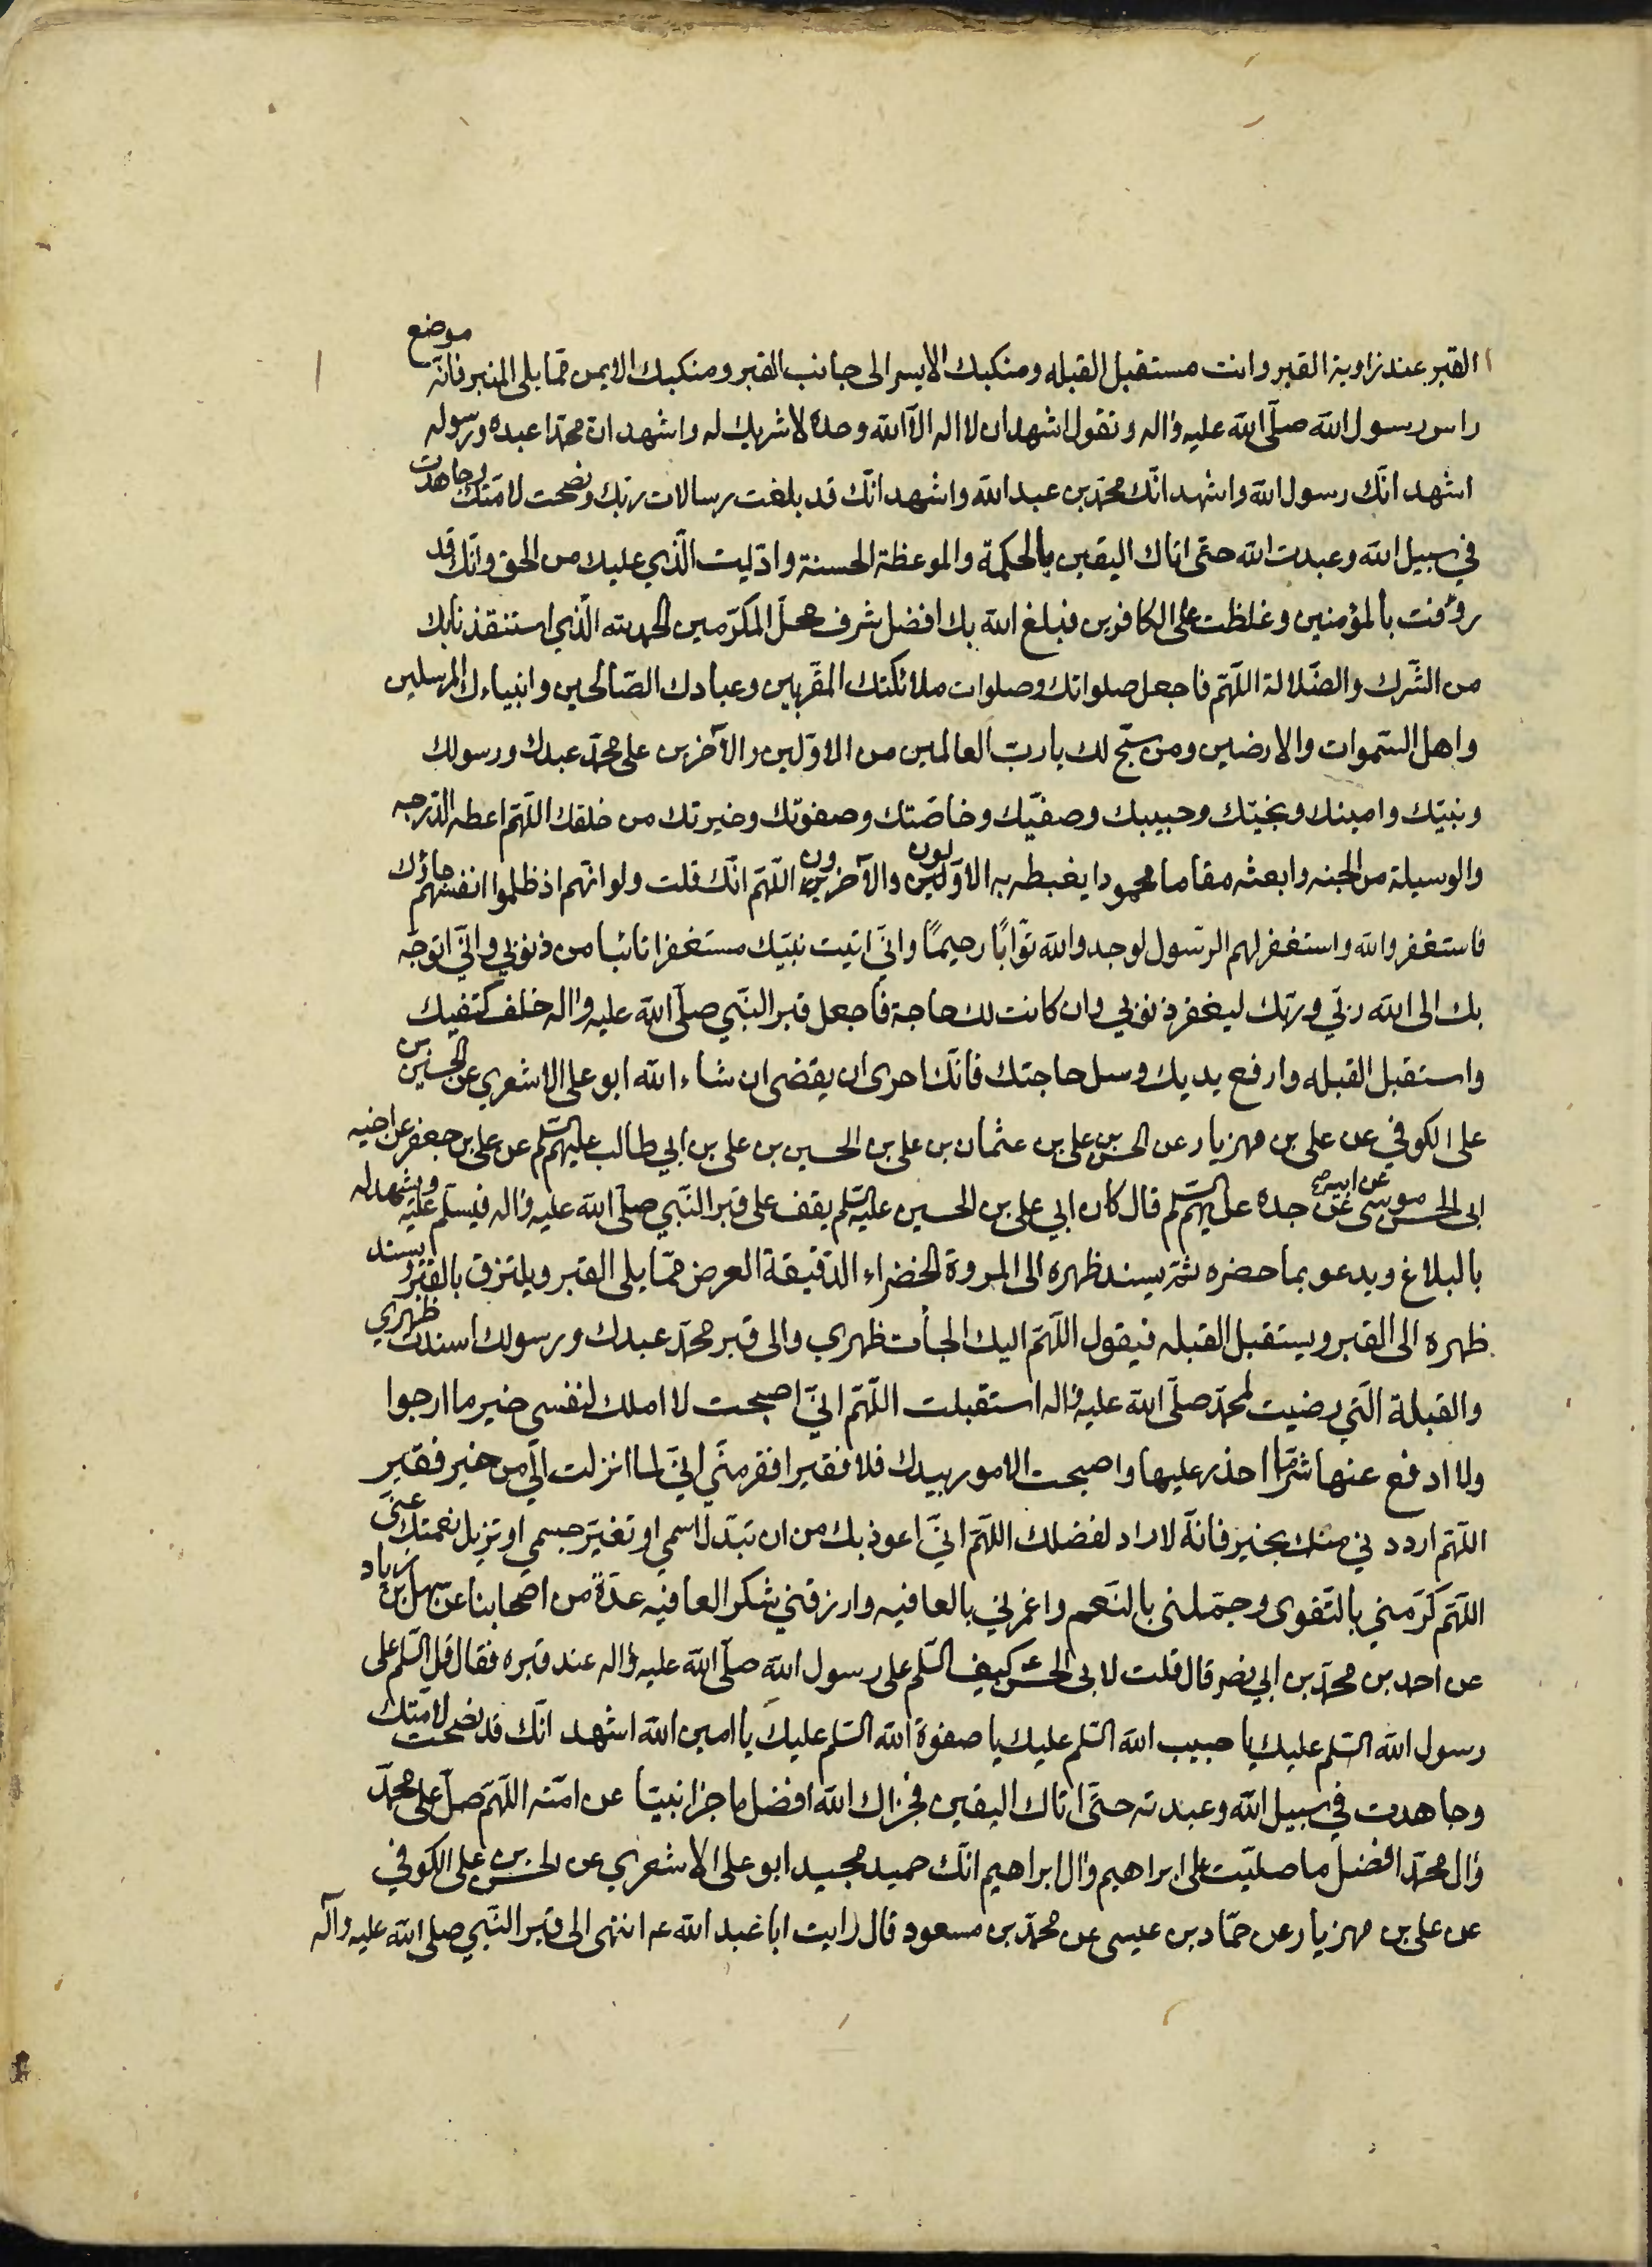 القبر عند زاوية القبر وانت مستقبل القبله ومنكبك الايسر الى جانب القبر ومنكبك الايمن ممّا يلى المنبر فانّه موضع
راس رسول الله صلّى الله عليه واله وتقول اشهد ان لا اله الّا الله وحده لا شريك له واشهد انّ محمّدا عبده ورسوله
اشهد انّك رسول الله واشهد انّك محمّد بن عبد الله واشهد انّك قد بلغت رسالات ربّك ونصحت لامّتك وجاهدت
في سبيل الله وعبدت الله حتّى اتاك اليقين بالحكمة والموعظة الحسنة وادّيت الّذي عليك من الحق وانّك قد
رؤفت بالمؤمنين وغلظت على الكافرين فبلغ الله بك افضل شرف محلّ المكرّمين الحمد لله الّذي استنقذنا بك
من الشّرك والضّلالة اللّهمّ فاجعل صلواتك وصلوات ملائكتك المقرّبين وعبادك الصّالحين وانبياءك المرسلين
واهل السّموات والارضين ومن سبّح لك يا ربّ العالمين من الاوّلين والآخرين على محمّد عبدك ورسولك
ونبيّك وامينك ونجيّك وحبيبك وصفيّك وخاصّتك وصفوتك وخيرتك من خلقك اللّهمّ اعطه الدّرجه
والوسيلة من الجنه وابعثه مقاما محمودا يغبطه به الاوّلون والآخرون اللّهمّ انّك قلت ولو انّهم اذ ظلموا انفسهم جاؤك
فاستغفروا الله واستغفر لهم الرّسول لوجدوا الله توّابًا رحيمًا وانّي اتيت نبيّك مستغفرا تائبا من ذنوبي وانّي اتوجّه
بك الى الله ربّي وربّك ليغفر ذنوبي وان كانت لك حاجة فاجعل قبر النّبي صلّى الله عليه واله خلف كتفيك
واستقبل القبله وارفع يديك وسل حاجتك فانّك احرى ان يقضى ان شاء الله ابو على الاشعري عن الحسن بن
على الكوفي عن على بن مهزيار عن الحسن بن على بن عثمان بن على بن الحسين بن على بن ابي طالب عليهم السّلم عن على بن جعفر عن اخيه
ابى الحسن موسى عن ابيه عن جده عليهم السّلم قال كان ابي على بن الحسين عليه السّلم يقف على قبر النّبي صلّى الله عليه واله فيسلّم عليه ويشهد له
بالبلاغ ويدعو بما حضره ثمّ يسند ظهره الى المروة الخضراء الدّقيقة العرض ممّا يلى القبر ويلتزق بالقبر ويسند
ظهره الى القبر ويستقبل القبله فيقول اللّهمّ اليك الجأت ظهري والى قبر محمّد عبدك ورسولك اسندت ظهري
والقبلة الّتي رضيت لمحمّد صلّى الله عليه واله استقبلت اللّهمّ انّي اصبحت لا املك لنفسي خير ما ارجوا
ولا ادفع عنها شرّ ما احذر عليها واصبحت الامور بيدك فلا فقير افقر منّي انّي لما انزلت الّي من خير فقير
اللّهمّ ارددني منك بخير فانّه لا رادّ لفضلك اللّهمّ انّي اعوذ بك من ان تبدّل اسمي او تغيّر جسمي او تزيل نعمتك عنّي
اللّهمّ كرّمني بالتّقوى وجمّلنى بالنّعم واغمرني بالعافيه وارزقني شكر العافيه عدّة من اصحابنا عن سهل بن زياد
عن احمد بن محمّد بن ابي نصر قال قلت لابى الحسن ع كيف السّلم على رسول الله صلّى الله عليه واله عند قبره فقال قل السّلم على
رسول الله السّلم عليك يا حبيب الله السّلم عليك يا صفوة الله السّلم عليك يا امين الله اشهد انّك قد نصحت لامّتك
وجاهدت في سبيل الله وعبدته حتّى اتاك اليقين فجزاك الله افضل ما جزا نبيّا عن امّته اللّهمّ صلّ على محمّد
وال محمّد افضل ما صلّيت على ابراهيم وال ابراهيم انّك حميد مجيد ابو على الاشعري عن الحسن بن على الكوفي
عن على بن مهزيار عن حمّاد بن عيسى عن محمّد بن مسعود قال رايت ابا عبد الله ع انتهى الى قبر النّبي صلى الله عليه وآله